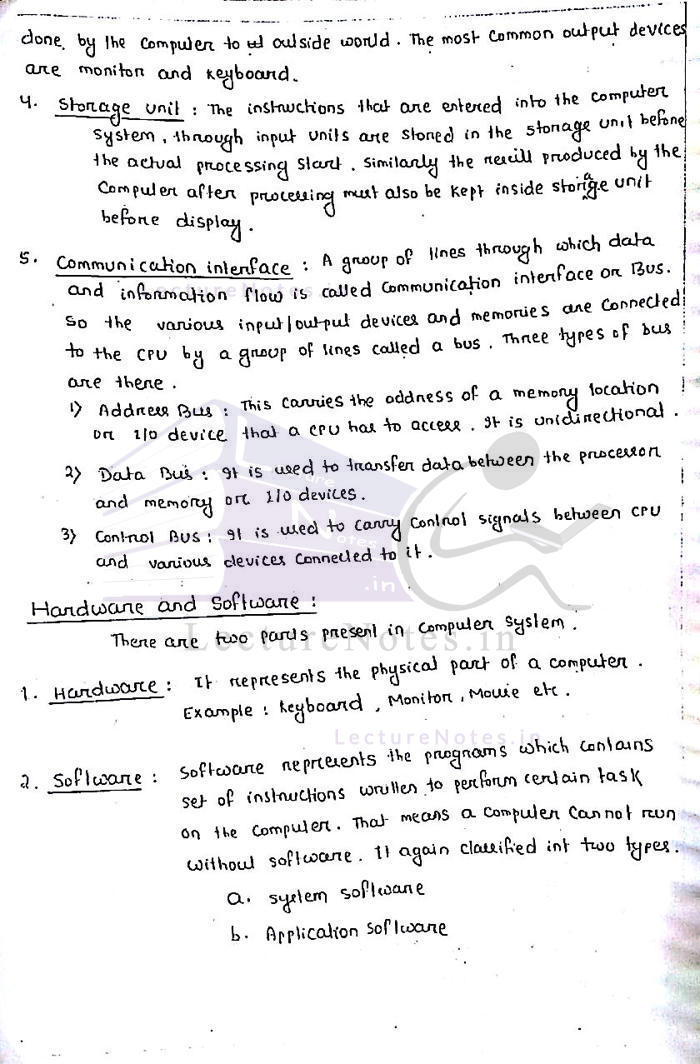 done by the computer to outside world. The most common output devices
are monitor and keyboard.
4. Storage unit : The instructions that are entered into the computer
system, through input units are stored in the storage unit before
the actual processing start. Similarly the result produced by the
computer after processing must also be kept inside storage unit
before display.
5. Communication interface : A group of lines through which data
and information flow is called Communication interface or Bus.
So the various input/output devices and memories are connected
to the CPU by a group of lines called a bus. Three types of bus
are there.
1) Address Bus : This carries the address of a memory location
or I/O device that a CPU has to access. It is unidirectional.
2) Data Bus : It is used to transfer data between the processor
and memory or I/O devices.
3) Control Bus : It is used to carry control signals between CPU
and various devices connected to it.
Hardware and Software :
There are two parts present in computer system.
LectureNotes.in
1. Hardware : It represents the physical part of a computer.
Example : Keyboard, Monitor, Mouse etc.
LectureNotes.in
2. Software : Software represents the programs which contains
set of instructions written to perform certain task
on the computer. That means a computer cannot run
without software. It again classified int two types.
a. system software
b. Application software